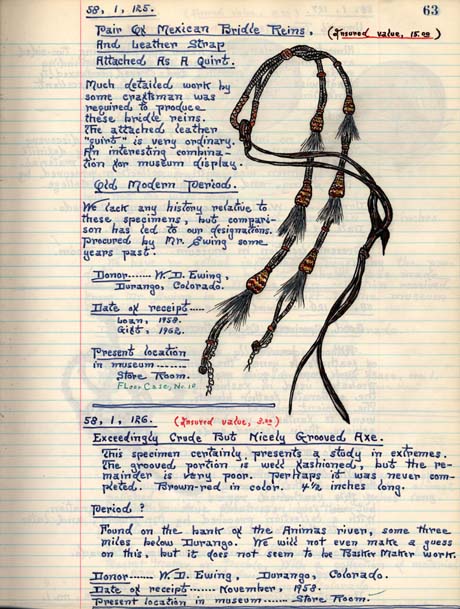 58, 1, 125.
63
Pair Of Mexican Bridle Reins. (Insured value, 15.00)
And Leather Strap
Attached As A Quirt.
Much detailed work by
some craftsman was
required to produce
these bridle reins.
The attached leather
"quirt" is very ordinary.
An interesting combina-
tion for museum display.
Old Modern Period.
We lack any history relative to
these specimens, but compari-
son has led to our designations.
Procured by Mr. Ewing some
years past.
Donor...... W. D. Ewing,
Durango, Colorado.
Date of receipt....
Loan, 1958.
Gift, 1962.
Present location
in museum........
Store Room.
Floor Case, No. 18
58, 1, 126. (Insured value, 3.00)
Exceedingly Crude But Nicely Grooved Axe.
This specimen certainly presents a study in extremes.
The grooved portion is well fashioned, but the re-
mainder is very poor. Perhaps it was never com-
pleted. Brown-red in color. 4½ inches long.
Period ?
Found on the bank of the Animas river, some three
miles below Durango. We will not even make a guess
on this, but it does not seem to be Basket Maker work.
Donor...... W. D. Ewing, Durango, Colorado.
Date of receipt....... November, 1958.
Present location in museum...... Store Room.